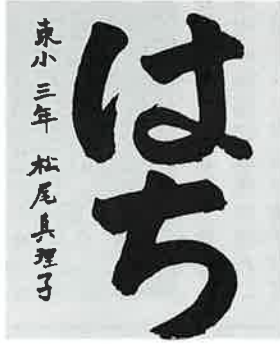 はち
東小 三年 松尾真理子